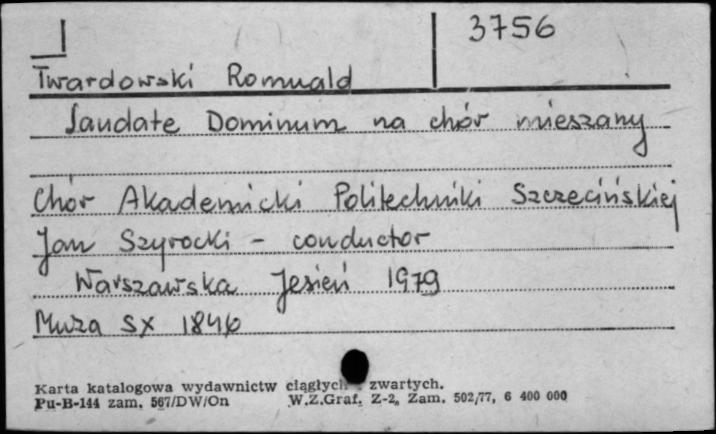 3756
Twardowski Romuald
Laudate Dominum na chór mieszany
Chór Akademicki Politechniki Szczecińskiej
Jan Szyrocki - conductor
Warszawska Jesień 1979
Muza SX 1846
Karta katalogowa wydawnictw ciągłych zwartych.
Pu-B-144 zam. 567/DW/On W.Z.Graf. Z-2, Zam. 502/77, 6 400 000